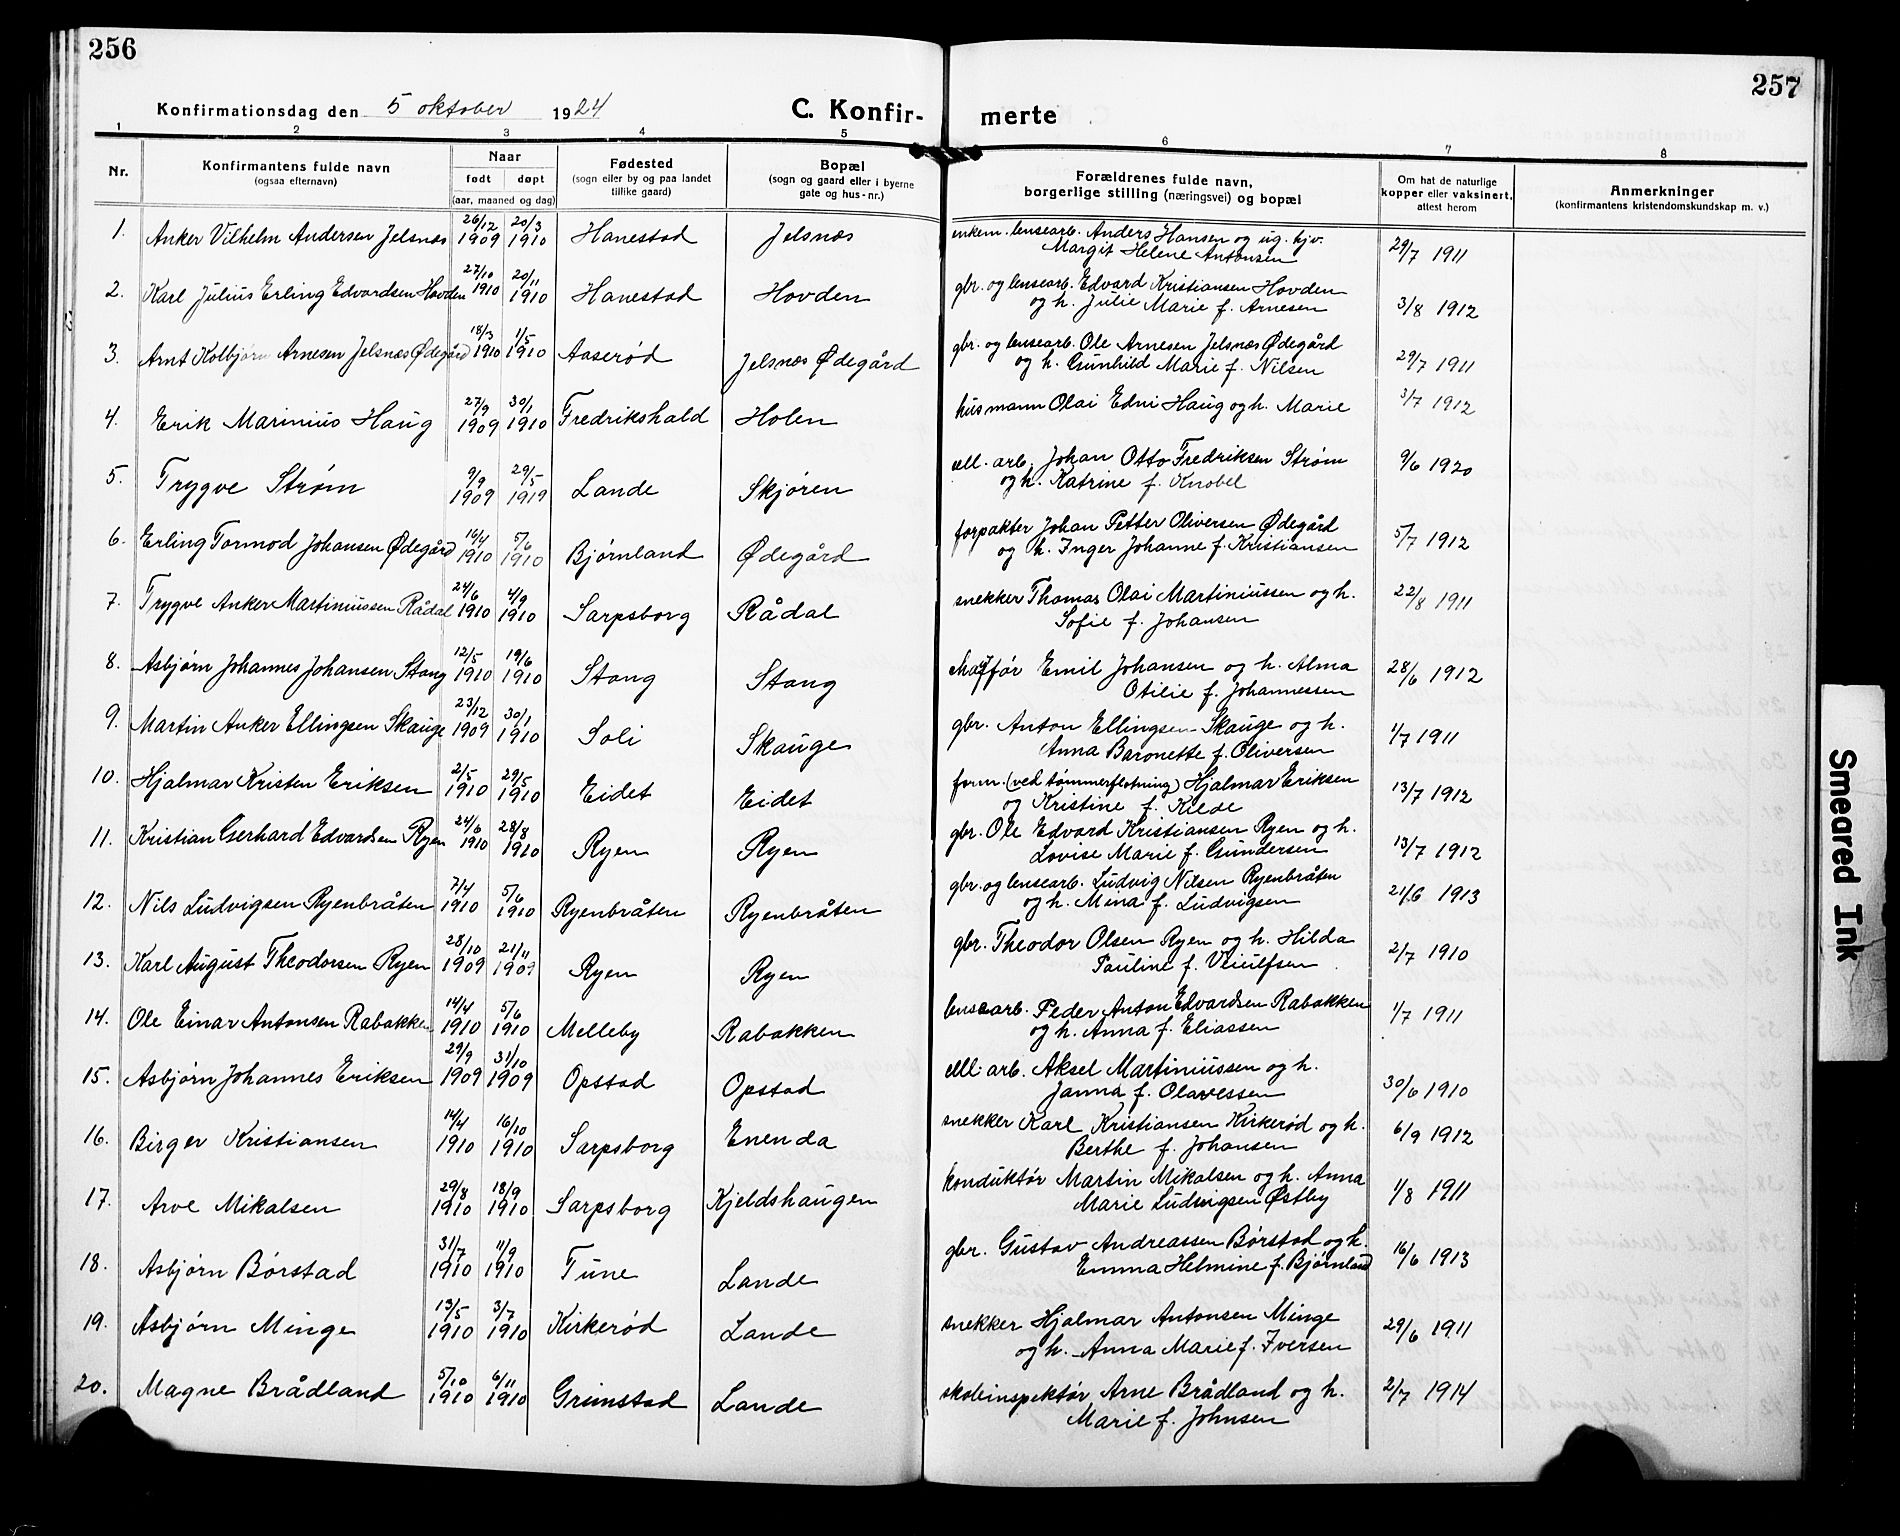 256
257
Konfirmationsdag den 5 oktober 1924
C. Konfir- merte
1 2 3 4 5 6 7 8
Nr.
Konfirmantens fulde navn
(ogsaa efternavn)
Naar
født døpt
(aar, maaned og dag)
Fødested
(sogn eller by og paa landet
tillike gaard)
Bopæl
(sogn og gaard eller i byerne
gate og hus-nr.)
Forældrenes fulde navn,
borgerlige stilling (næringsvei) og bopæl
Om hat de naturlige
kopper eller vaksinert,
attest herom
Anmerkninger
(konfirmantens kristendomskundskap m. v.)
1. Anker Vilhelm Andersen Jelsnæs 26/12 1909 20/3 1910 Hanestad Jelsnæs enkem. lensearb. Anders Hansen og ug. hjv. 29/7 1911
Margit Helene Antonsen
2. Karl Julius Erling Edvardsen Hovden 27/10 1910 20/11 1910 Hanestad Hovden gbr. og lensearb. Edvard Kristiansen Hovden 3/8 1912
og h. Julie Marie f. Arnesen
3. Arnt Kolbjørn Arnesen Jelsnæs Ødegård 18/3 1910 1/5 1910 Aaserød Jelsnæs Ødegård gbr. og lensearb. Ole Arnesen Jelsnæs Ødegård 29/7 1911
og h. Gunhild Marie f. Nilsen
4. Erik Marinius Haug 27/9 1909 30/1 1910 Fredrikshald Holen husmann Olai Edni Haug og h. Marie 3/7 1912
5. Trygve Strøm 9/9 1909 29/5 1919 Lande Skjøren cell. arb. Johan Otto Fredriksen Strøm 9/6 1920
og h. Katrine f. Knobel
6. Erling Tormod Johansen Ødegård 16/4 1910 5/6 1910 Bjørnland Ødegård forpakter Johan Petter Oliversen Ødegård 5/7 1912
og h. Inger Johanne f. Kristiansen
7. Trygve Anker Martiniussen Rådal 24/6 1910 4/9 1910 Sarpsborg Rådal snekker Thomas Olai Martiniussen og h. 22/8 1911
Sofie f. Johansen
8. Asbjørn Johannes Johansen Stang 12/5 1910 19/6 1910 Stang Stang chaffør Emil Johansen og h. Alma 28/6 1912
Otilie f. Johannessen
9. Martin Anker Ellingsen Skauge 23/12 1909 30/1 1910 Soli Skauge gbr. Anton Ellingsen Skauge og h. 1/7 1911
Anna Baronette f. Oliversen
10. Hjalmar Kristen Eriksen 2/5 1910 29/5 1910 Eidet Eidet form. (ved tømmerfløtning) Hjalmar Eriksen 13/7 1912
og Kristine f. Kilde
11. Kristian Gerhard Edvardsen Ryen 24/6 1910 28/8 1910 Ryen Ryen gbr. Ole Edvard Kristiansen Ryen og h. 13/7 1912
Lovise Marie f. Gundersen
12. Nils Ludvigsen Ryenbråten 7/4 1910 5/6 1910 Ryenbråten Ryenbråten gbr. og lensearb. Ludvig Nilsen Ryenbråten 21/6 1913
og h. Mina f. Ludvigsen
13. Karl August Theodorsen Ryen 28/10 1909 21/11 1909 Ryen Ryen gbr. Theodor Olsen Ryen og h. Hilda 2/7 1910
Pauline f. Veiulfsen
14. Ole Einar Antonsen Rabakken 14/4 1910 5/6 1910 Melleby Rabakken lensearb. Peder Anton Edvardsen Rabakken 1/7 1911
og h. Anna f. Eliassen
15. Asbjørn Johannes Eriksen 29/9 1909 31/10 1909 Opstad Opstad cell. arb. Aksel Martiniussen og h. 30/6 1910
Janna f. Olavessen
16. Birger Kristiansen 14/4 1910 16/10 1910 Sarpsborg Enenda snekker Karl Kristiansen Kirkerød og h. 6/9 1912
Berthe f. Johansen
17. Arve Mikalsen 29/8 1910 18/9 1910 Sarpsborg Kjeldshaugen konduktør Martin Mikalsen og h. Anna 1/8 1911
Marie Ludvigsen Østby
18. Asbjørn Børstad 31/7 1910 11/9 1910 Tune Lande gbr. Gustav Andreassen Børstad og h. 16/6 1913
Emma Helmine f. Bjørnland
19. Asbjørn Minge 13/5 1910 3/7 1910 Kirkerød Lande snekker Hjalmar Antonsen Minge 29/6 1911
og h. Anna Marie f. Iversen
20. Magne Brådland 5/10 1910 6/11 1910 Grimstad Lande skoleinspektør Arne Brådland og h. 2/7 1914
Marie f. Johnsen
Smeared Ink